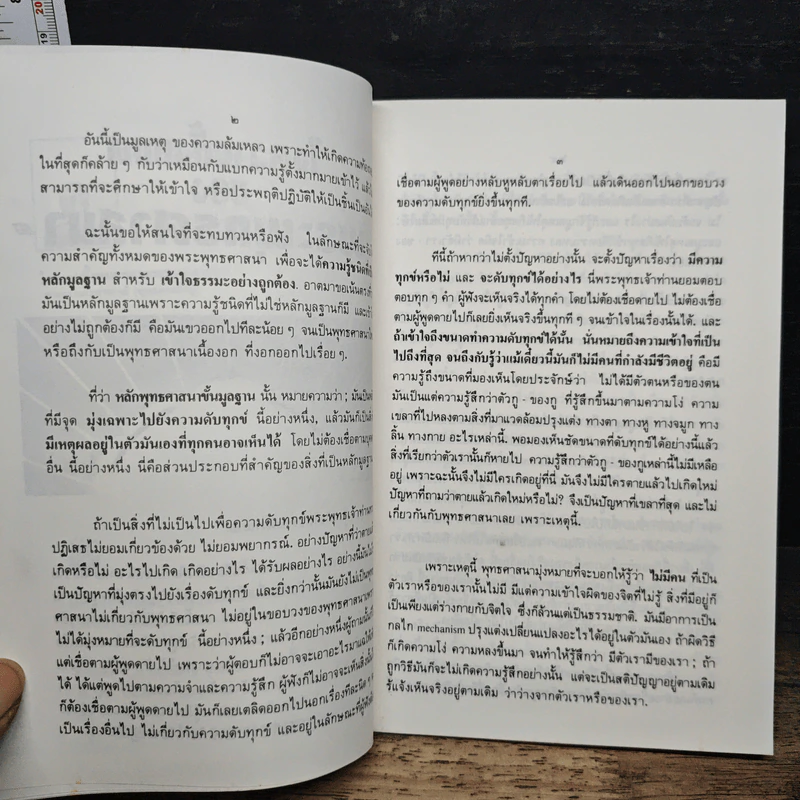 ๒
อันนี้เป็นมูลเหตุ ของความล้มเหลว เพราะทำให้เกิดความ
ในที่สุดก็คล้าย ๆ กับว่าเหมือนกับแบกความรู้ตั้งมากมายเข้าไว้
สามารถที่จะศึกษาให้เข้าใจ หรือประพฤติปฏิบัติให้เป็นชิ้นเป็นอัน
ฉะนั้นขอให้สนใจที่จะทบทวนหรือฟัง ในลักษณะที่จะ
ความสำคัญทั้งหมดของพระพุทธศาสนา เพื่อจะได้ความรู้ชนิดที่
หลักมูลฐาน สำหรับ เข้าใจธรรมะอย่างถูกต้อง. อาตมาขอเน้นตรง
มันเป็นหลักมูลฐานเพราะความรู้ชนิดที่ไม่ใช่หลักมูลฐานก็มี และ
อย่างไม่ถูกต้องก็มี คือมันเขวออกไปทีละน้อย ๆ จนเป็นพุทธศาสนา
หรือถึงกับเป็นพุทธศาสนาเนื้องอก ที่งอกออกไปเรื่อย ๆ.
ที่ว่า หลักพุทธศาสนาขั้นมูลฐาน นั้น หมายความว่า ; มัน
ที่มีจุด มุ่งเฉพาะไปยังความดับทุกข์ นี้อย่างหนึ่ง, แล้วมันก็
มีเหตุผลอยู่ในตัวมันเองที่ทุกคนอาจเห็นได้ โดยไม่ต้องเชื่อตาม
อื่น นี้อย่างหนึ่ง นี่คือส่วนประกอบที่สำคัญของสิ่งที่เป็นหลักมูลฐาน
ถ้าเป็นสิ่งที่ไม่เป็นไปเพื่อความดับทุกข์พระพุทธเจ้าท่าน
ปฏิเสธไม่ยอมเกี่ยวข้องด้วย ไม่ยอมพยากรณ์. อย่างปัญหาที่ว่า
เกิดหรือไม่ อะไรไปเกิด เกิดอย่างไร ได้รับผลอย่างไร อย่างนี้มัน
เป็นปัญหาที่มุ่งตรงไปยังเรื่องดับทุกข์ และยิ่งกว่านั้นมันยังไม่เป็น
ศาสนาไม่เกี่ยวกับพุทธศาสนา ไม่อยู่ในขอบวงของพุทธศาสนา
ไม่ได้มุ่งหมายที่จะดับทุกข์ นี้อย่างหนึ่ง ; แล้วอีกอย่างหนึ่งผู้ถาม
แต่เชื่อตามผู้พูดดายไป เพราะว่าผู้ตอบก็ไม่อาจจะเอาอะไรมา
ได้ ได้แต่พูดไปตามความจำและความรู้สึก ผู้ฟังก็ไม่อาจจะเห็น
ก็ต้องเชื่อตามผู้พูดดายไป มันก็เลยเตลิดออกไปนอกเรื่องทีละนิด ๆ
เป็นเรื่องอื่นไป ไม่เกี่ยวกับความดับทุกข์ และอยู่ในลักษณะที่
๓
เชื่อตามผู้พูดอย่างหลับหูหลับตาเรื่อยไป แล้วเดินออกไปนอกขอบวง
ของความดับทุกข์ยิ่งขึ้นทุกที.
ทีนี้ถ้าหากว่าไม่ตั้งปัญหาอย่างนั้น จะตั้งปัญหาเรื่องว่า มีความ
ทุกข์หรือไม่ และ จะดับทุกข์ได้อย่างไร นี่พระพุทธเจ้าท่านยอมตอบ
ตอบทุก ๆ คำ ผู้ฟังจะเห็นจริงได้ทุกคำ โดยไม่ต้องเชื่อดายไป ไม่ต้องเชื่อ
ตามผู้พูดดายไปก็เลยยิ่งเห็นจริงยิ่งขึ้นทุกที ๆ จนเข้าใจในเรื่องนั้นได้. และ
ถ้าเข้าใจถึงขนาดทำความดับทุกข์ได้นั้น นั่นหมายถึงความเข้าใจที่เป็น
ไปถึงที่สุด จนถึงกับรู้ว่าแม้เดี๋ยวนี้มันก็ไม่มีคนที่กำลังมีชีวิตอยู่ คือมี
ความรู้ถึงขนาดที่มองเห็นโดยประจักษ์ว่า ไม่ได้มีตัวตนหรือของตน
มันเป็นแต่ความรู้สึกว่าตัวกู - ของกู ที่รู้สึกขึ้นมาตามความโง่ ความ
เขลาที่ไปหลงตามสิ่งที่มาแวดล้อมปรุงแต่ง ทางตา ทางหู ทางจมูก ทาง
ลิ้น ทางกาย อะไรเหล่านี้. พอมองเห็นชัดขนาดที่ดับทุกข์ได้อย่างนี้แล้ว
สิ่งที่เรียกว่าตัวเรานั้นก็หายไป ความรู้สึกว่าตัวกู - ของกูเหล่านี้ไม่มีเหลือ
อยู่ เพราะฉะนั้นจึงไม่มีใครเกิดอยู่ที่นี่ มันจึงไม่มีใครตายแล้วไปเกิดใหม่
ปัญหาที่ถามว่าตายแล้วเกิดใหม่หรือไม่? จึงเป็นปัญหาที่เขลาที่สุด และไม่
เกี่ยวกันกับพุทธศาสนาเลย เพราะเหตุนี้.
เพราะเหตุนี้ พุทธศาสนามุ่งหมายที่จะบอกให้รู้ว่า ไม่มีคน ที่เป็น
ตัวเราหรือของเรานั้นไม่มี มีแต่ความเข้าใจผิดของจิตที่ไม่รู้ สิ่งที่มีอยู่ก็
เป็นเพียงแต่ร่างกายกับจิตใจ ซึ่งก็ล้วนแต่เป็นธรรมชาติ. มันมีอาการเป็น
กลไก mechanism ปรุงแต่งเปลี่ยนแปลงอะไรได้อยู่ในตัวมันเอง ถ้าผิดวิธี
ก็เกิดความโง่ ความหลงขึ้นมา จนทำให้รู้สึกว่า มีตัวเรามีของเรา ; ถ้า
ถูกวิธีมันก็จะไม่เกิดความรู้สึกอย่างนั้น แต่จะเป็นสติปัญญาอยู่ตามเดิม
รู้แจ้งเห็นจริงอยู่ตามเดิม ว่าว่างจากตัวเราหรือของเรา.